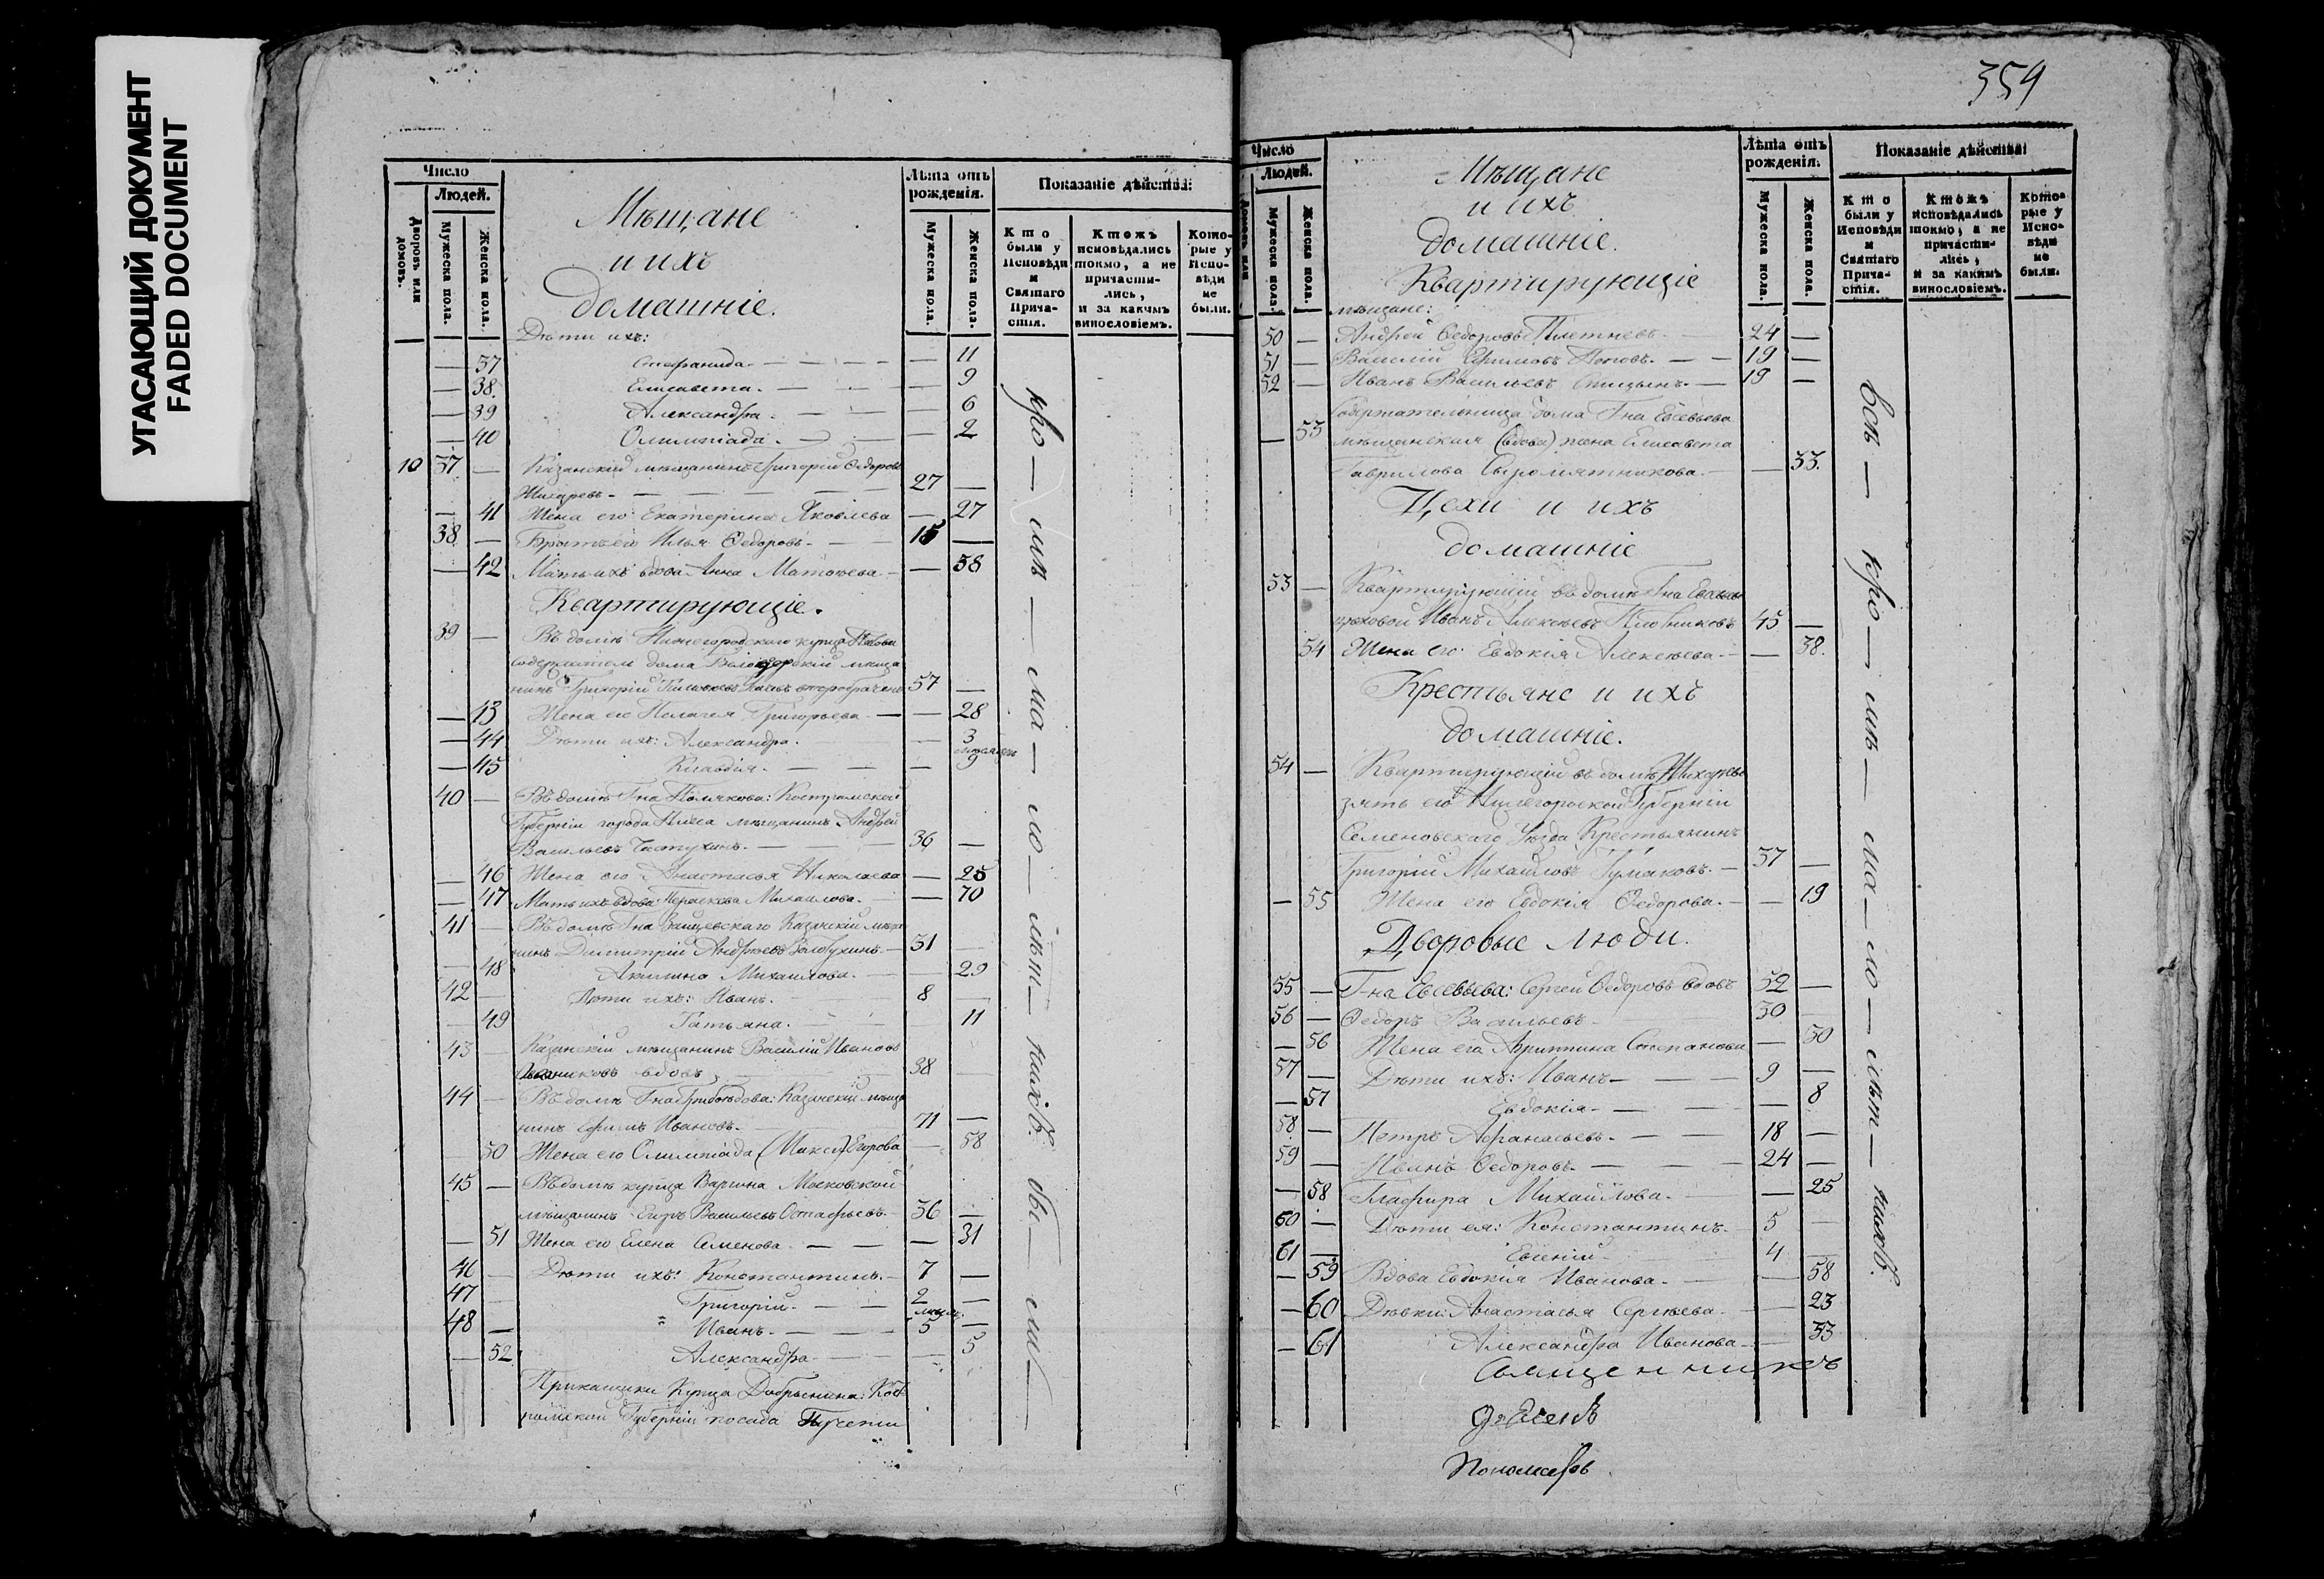 УГАСАЮЩИЙ ДОКУМЕНТ
FADED DOCUMENT
Число
Людей.
Дворовъ или домовъ.
Мужеска пола.
Женска пола.
Мѣщане
и ихъ
домашніе.
Лѣта отъ рожденія.
Мужеска пола.
Женска пола.
Показаніе дѣйства:
Кто были у Исповѣди и Святаго Причастія.
Ктожъ исповѣдались токмо, а не причастились, и за какимъ винословіемъ.
Которые у Исповѣди не были.
Дѣти ихъ:
— 37 Стефанида — — 11
— 38. Елисавета — — 9
— 39 Александра — — 6
— 40 Олимпіада — — 2
10 37 — Казанскій мѣщанинъ Григорій Ѳедоровъ
Жихаревъ — 27 —
— 41 Жена его Екатерина Яковлева — 27
38 — Братъ его Илья Ѳедоровъ — 15 —
— 42 Мать ихъ вдова Анна Матвѣева — 58
Квартирующіе.
39 — Въ домѣ Нижегородскаго купца
содержатель дома мѣща
нинъ Григорій 57 —
— 43 Жена его Пелагея Григорьева — — 28
— 44 Дѣти ихъ: Александра — 3
— 45 Клавдія — — 9
40 — Въ домѣ Г-на Полякова: Костромской
Губерніи города Плеса мѣщанинъ Андрей
Васильевъ Пастухинъ — 36 —
— 46 Жена его Анастасья Николаева — 25
— 47 Мать ихъ вдова Параскева Михаилова — 70
41 — Въ домѣ Г-на Казанскій мѣща
нинъ Димитрій Андреевъ 31 —
— 48 Акилина Михаилова — 29
42 — Дѣти ихъ: Иванъ 8 —
— 49 Татьяна — 11
43 — Казанскій мѣщанинъ Василій Ивановъ
вдовъ 38
44 — Въ домѣ Г-на Грибоѣдова: Казанскій мѣща
нинъ Ефимъ Ивановъ 71 —
50 Жена его Олимпіада Егорова — 58
45 — Въ домѣ купца Варгина Московской
мѣщанинъ Егоръ Васильевъ Остафьевъ 36 —
— 51 Жена его Елена Семенова — — 31
46 — Дѣти ихъ: Константинъ 7 —
47 — Григорій 2 —
48 — Иванъ мѣсяц. 5 —
— 52 Александра — 5
Прикащики Купца Добрынина: Кост
ромской Губерніи посада Пучежи
359
Число
Людей.
Дворовъ или
Мужеска пола.
Женска пола.
Мѣщане
и ихъ
домашніе.
Квартирующіе
Лѣта отъ рожденія.
Мужеска пола.
Женска пола.
Показаніе дѣйства:
Кто были у Исповѣди и Святаго Причастія.
Ктожъ исповѣдались токмо, а не причастились, и за какимъ винословіемъ.
Которые у Исповѣди не были.
мѣщане:
50 — Андрей Ѳедоровъ Плетневъ 24 —
51 — Василій Ефимовъ Поповъ — 19 —
52 — Иванъ Васильевъ 19 —
Содержательница дома Г-на Евсевьева
— 53 мѣщанская (вдова) жена Елисавета
Гаврилова Сыромятникова — 33.
Цехи и ихъ
домашніе
53 — Квартирующій въ домѣ Г-на Евсевьева
цеховой Иванъ Алексѣевъ Плотниковъ 45 —
54 Жена его Евдокія Алексѣева — — 38.
Крестьяне и ихъ
домашніе.
54 — Квартирующій въ домѣ Жихарева
зять его Нижегородской Губерніи
Семеновскаго Уѣзда Крестьянинъ
Григорій Михаиловъ Гумаковъ 37 —
— 55 Жена его Евдокія Ѳедорова — 19
Дворовые люди.
55 — Г-на Евсевьева: Сергей Ѳедоровъ вдовъ 52 —
56 — Ѳедоръ Васильевъ 30 —
— 56 Жена его Агриппина Степанова — 30
57 — Дѣти ихъ: Иванъ — 9 —
— 57 Евдокія — — 8
58 — Петръ Афанасьевъ — 18 —
59 — Иванъ Ѳедоровъ — 24 —
— 58 Глафира Михайлова — 25
60 — Дѣти ея: Константинъ 5 —
61 — Евгеній 4 —
— 59 Вдова Евдокія Иванова — 58
— 60 Дѣвки: Анастасья Сергѣева — 23
— 61 Александра Иванова — 33
Священникъ
Пономарёв